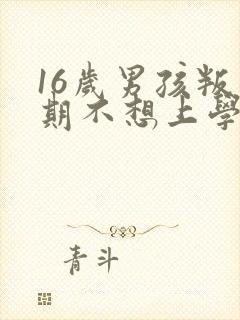 16歲男孩叛
期不想上學
青斗